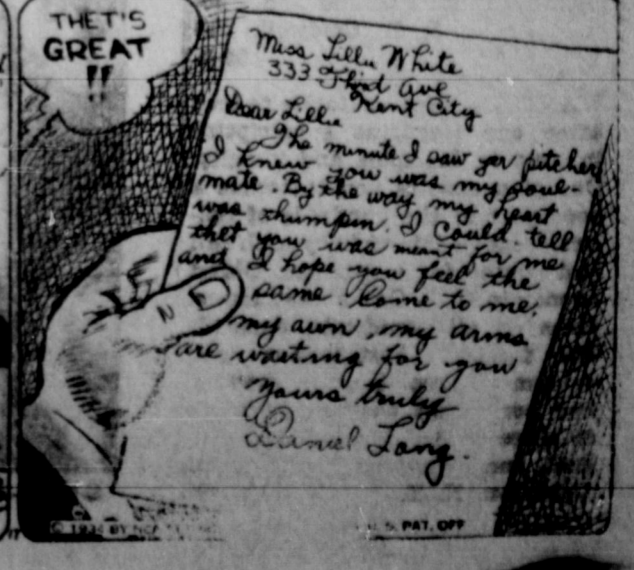 THET'S
GREAT
!!
Miss Lillie White
333 Third Ave
Kent City
Dear Lillie
The minute I saw yer pitcher
I knew you was my soul-
mate. By the way my heart
was thumpin. I could tell
thet you was meant for me
and I hope you feel the
same. Come to me,
my own, my arms
are waiting for you
Yours truly
Daniel Long.
© 1934 BY NEA
U.S. PAT. OFF